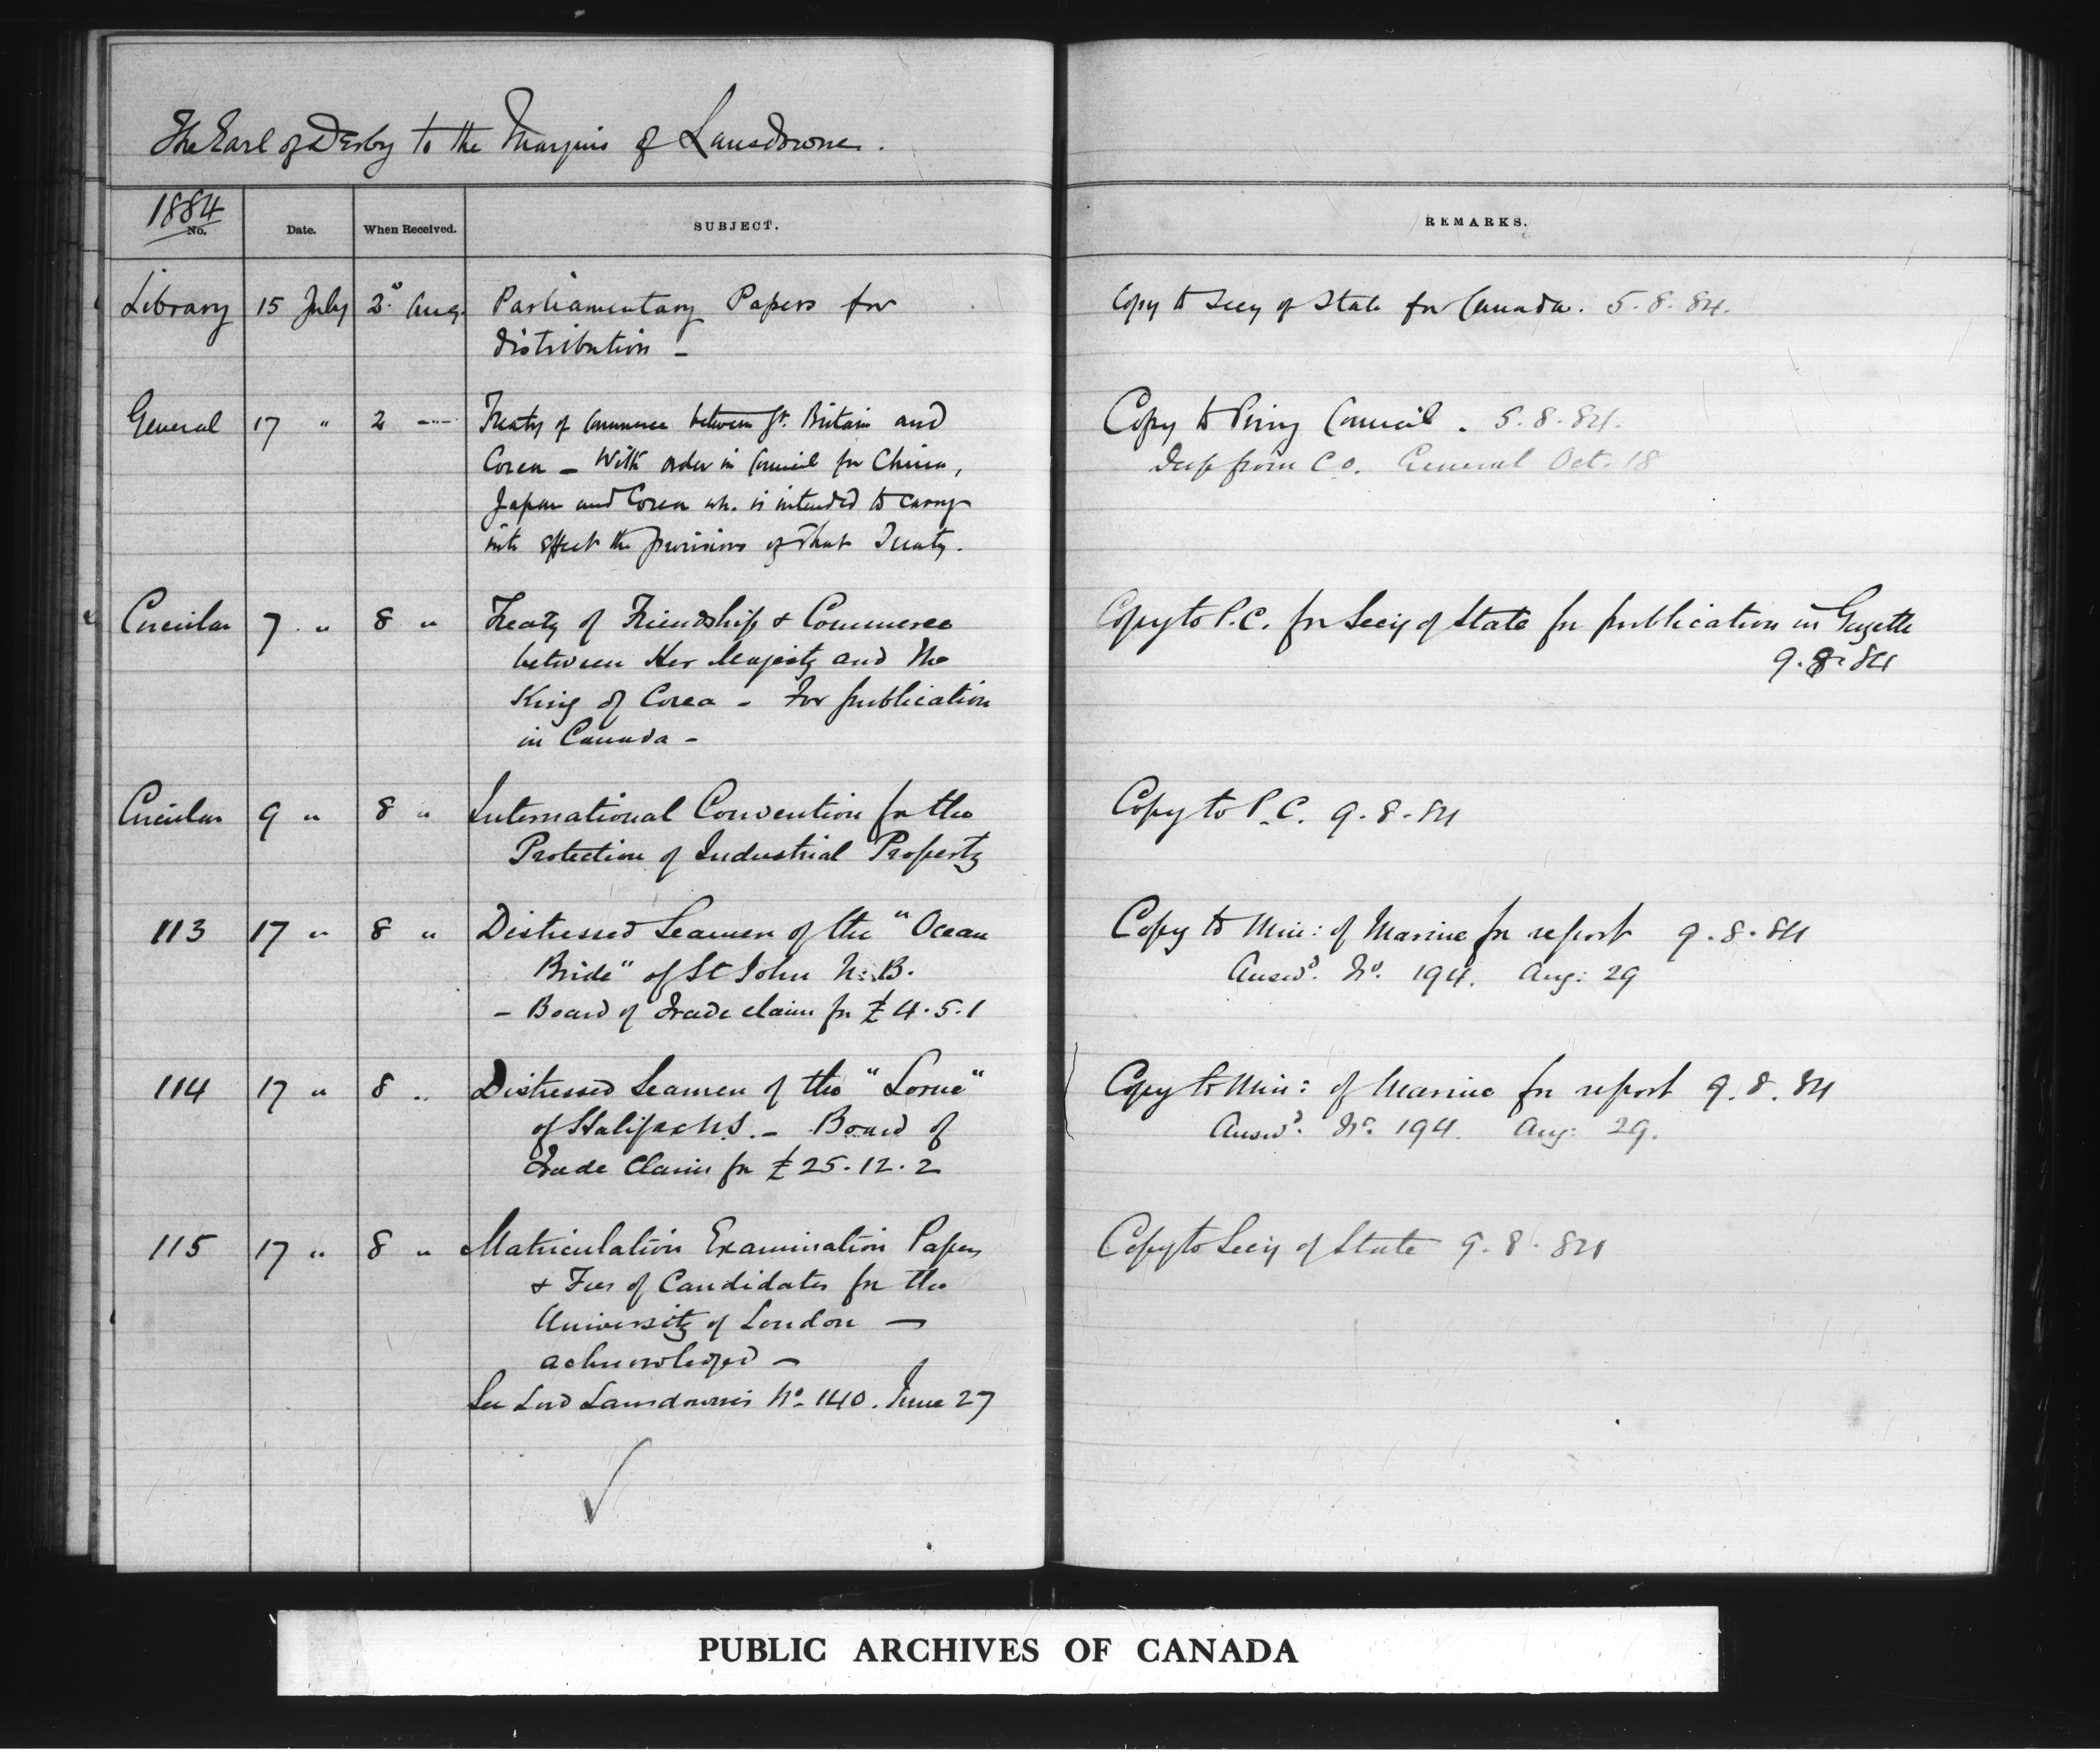 The Earl of Derby to the Marquis of Lansdowne.
1884
No. Date. When Received. SUBJECT. REMARKS.
Library 15 July 2d Aug. Parliamentary Papers for Copy to Secy of State for Canada. 5.8.84.
distribution –
General 17 " 2 --- Treaty of Commerce between Gt. Britain and Copy to Privy Council. 5.8.84.
Corea – With order in Council for China, Desp from C.O. General Oct. 18
Japan and Corea wh. is intended to carry
into effect the provisions of that Treaty.
Circular 7 " 8 " Treaty of Friendship & Commerce Copy to P.C. for Secy of State for publication in Gazette
between Her Majesty and the 9.8.84
King of Corea – For publication
in Canada –
Circular 9 " 8 " International Convention for the Copy to P.C. 9.8.84
Protection of Industrial Property
113 17 " 8 " Distressed Seamen of the "Ocean Copy to Min: of Marine for report 9.8.84
Bride" of St John N.B. Answd. No. 194. Aug: 29
– Board of Trade claim for £4.5.1
114 17 " 8 " Distressed Seamen of the "Lorne" Copy to Min: of Marine for report 9.8.84
of Halifax N.S. – Board of Answd. No. 194. Aug: 29.
Trade Claim for £25.12.2
115 17 " 8 " Matriculation Examination Papers Copy to Secy of State 9.8.84
& Fees of Candidates for the
University of London –
acknowledged –
See Lord Lansdowne's No. 140. June 27
PUBLIC ARCHIVES OF CANADA